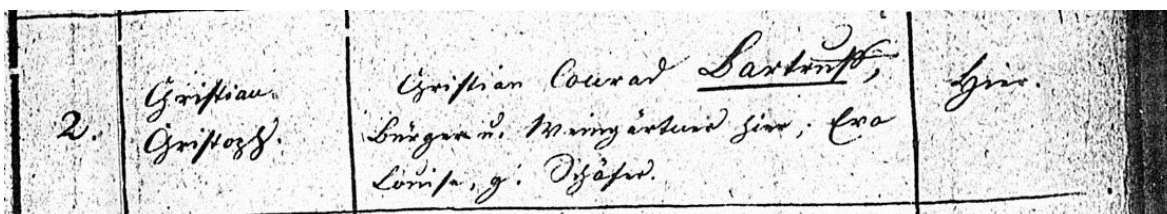 2.
Christian
Christoph.
Christian Conrad Bartruff,
Bürger u. Weingärtner hier; Eva
Louise, g. Schäfer.
Hier.